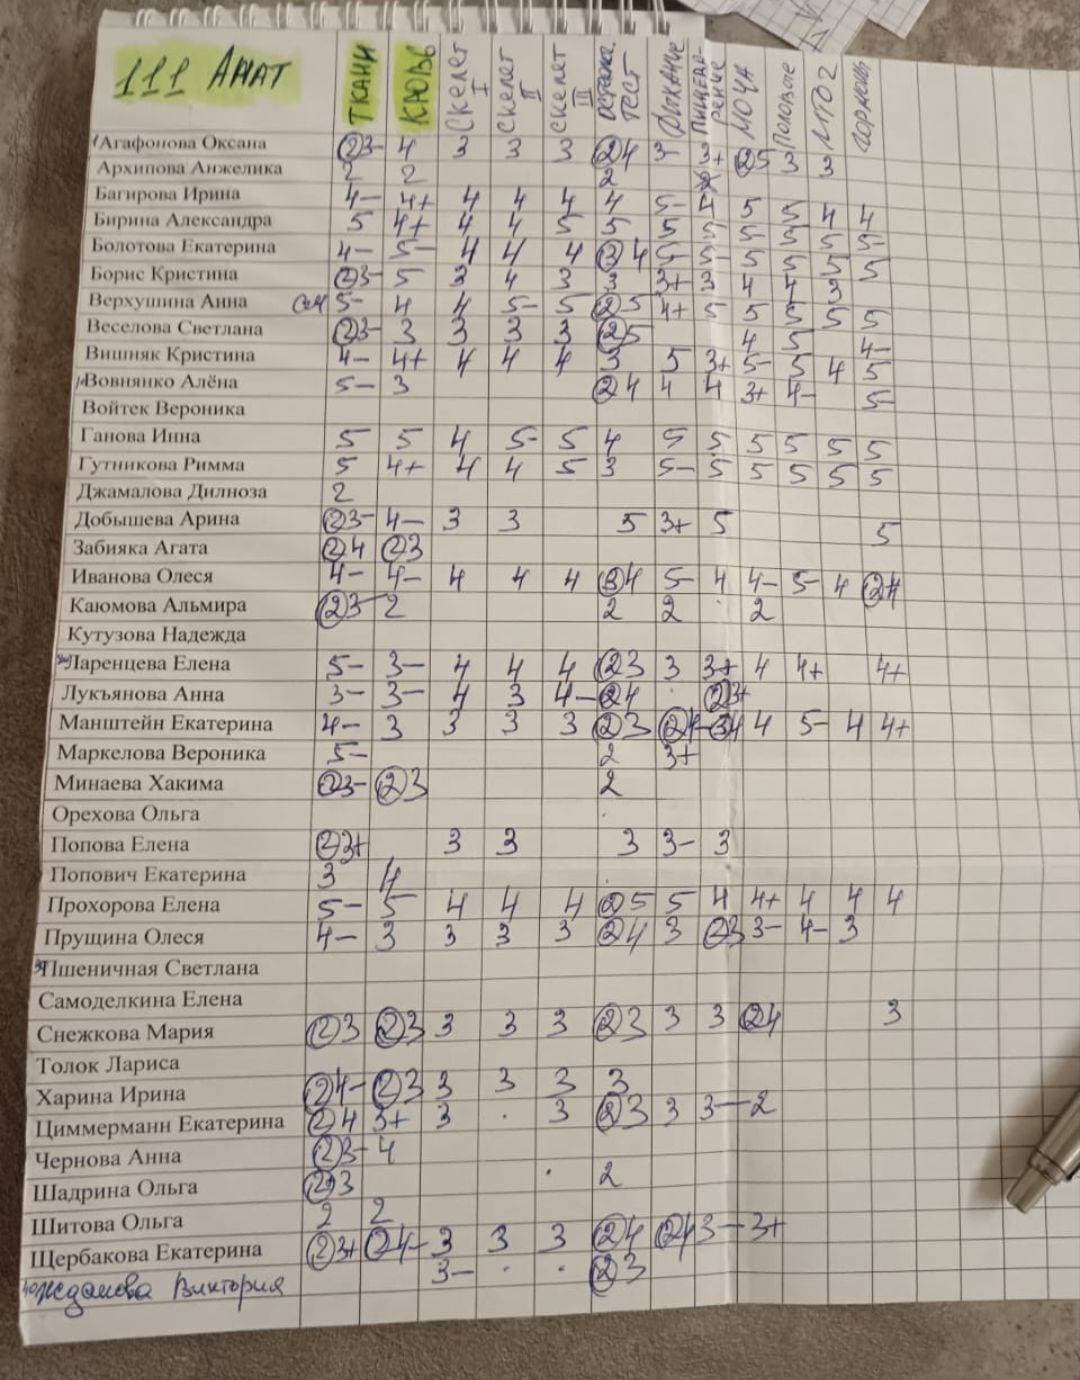 111 Анат ТКАНИ КРОВЬ Скелет I Скелет II Скелет III ТЕСТ Дыхание Пищева-рение МОЧА Половые ИТОГ 2
Агафонова Оксана ②3- 4 3 3 3 ②4 3- 3+ ②5 3 3
Архипова Анжелика 2 2 2
Багирова Ирина 4- 4+ 4 4 4 4 5- 4 5 5 4 4
Бирина Александра 5 4+ 4 4 5 5 5 5 5- 5 5 5-
Болотова Екатерина 4- 5- 4 4 4 ③4 5- 5- 5 5 5 5
Борис Кристина ②3- 5 3 4 3 3 3+ 3 4 4 3
Верхушина Анна 5- 4 4 5- 5 ②5 4+ 5 5 5 5 5
Веселова Светлана ②3- 3 3 3 3 ②5 4 5 4-
Вишняк Кристина 4- 4+ 4 4 4 3 5 3+ 5- 5 4 5
Вовнянко Алёна 5- 3 ②4 4 4 3+ 4- 5-
Войтек Вероника
Ганова Инна 5 5 4 5- 5 4 5 5 5 5 5 5
Гутникова Римма 5 4+ 4 4 5 3 5- 5 5 5 5 5
Джамалова Дилноза 2
Добышева Арина ②3- 4- 3 3 5 3+ 5 5
Забияка Агата ②4 ②3
Иванова Олеся 4- 4- 4 4 4 ③4 5- 4 4- 5- 4 ②4
Каюмова Альмира ②3- 2 2 2 2
Кутузова Надежда
Ларенцева Елена 5- 3- 4 4 4 ②3 3 3+ 4 4+ 4+
Лукьянова Анна 3- 3- 4 3 4- ②4 ②3+
Манштейн Екатерина 4- 3 3 3 3 ②3 ②4- ③4 4 5- 4 4+
Маркелова Вероника 5- 2 3+
Минаева Хакима ②3- ②3 2
Орехова Ольга
Попова Елена ②3+ 3 3 3 3- 3
Попович Екатерина 3 4
Прохорова Елена 5- 5 4 4 4 ②5 5 4 4+ 4 4 4
Прущина Олеся 4- 3 3 3 3 ②4 3 ②3 3- 4- 3
Пшеничная Светлана
Самоделкина Елена
Снежкова Мария ②3 ②3 3 3 3 ②3 3 3 ②4 3
Толок Лариса
Харина Ирина ②4- ②3 3 3 3 3
Циммерманн Екатерина ②4 3+ 3 3 ②3 3 3- 2
Чернова Анна ②3- 4
Шадрина Ольга ②3 2
Шитова Ольга 2 2
Щербакова Екатерина ②3+ ②4- 3 3 3 ②4 ②4 3- 3+
Жданова Виктория 3- ②3